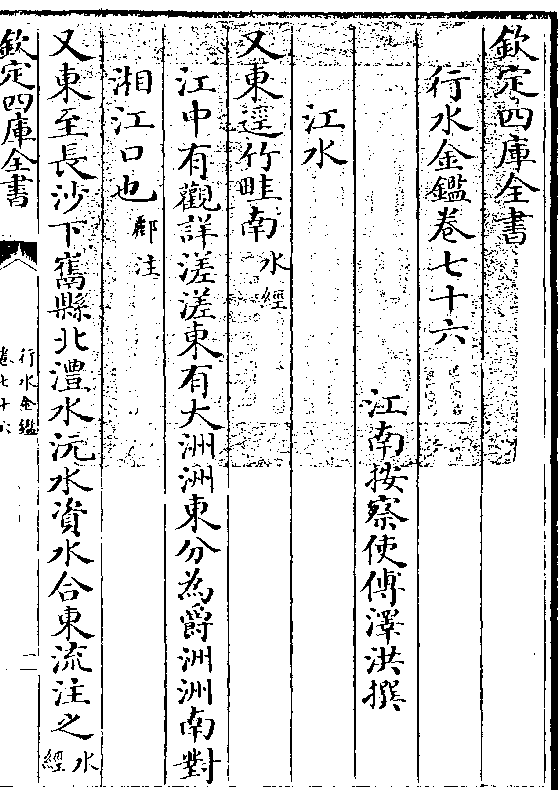 欽定四庫全書
行水金鑑卷七十六
江南按察使傅澤洪撰
江水
又東逕竹畦南水經
江中有觀詳溠溠東有大洲洲東分為爵洲洲南對
湘江口也酈注
又東至長沙下雋縣北澧水沅水資水合東流注之水經
欽定四庫全書
行水金鑑
卷七十六
一